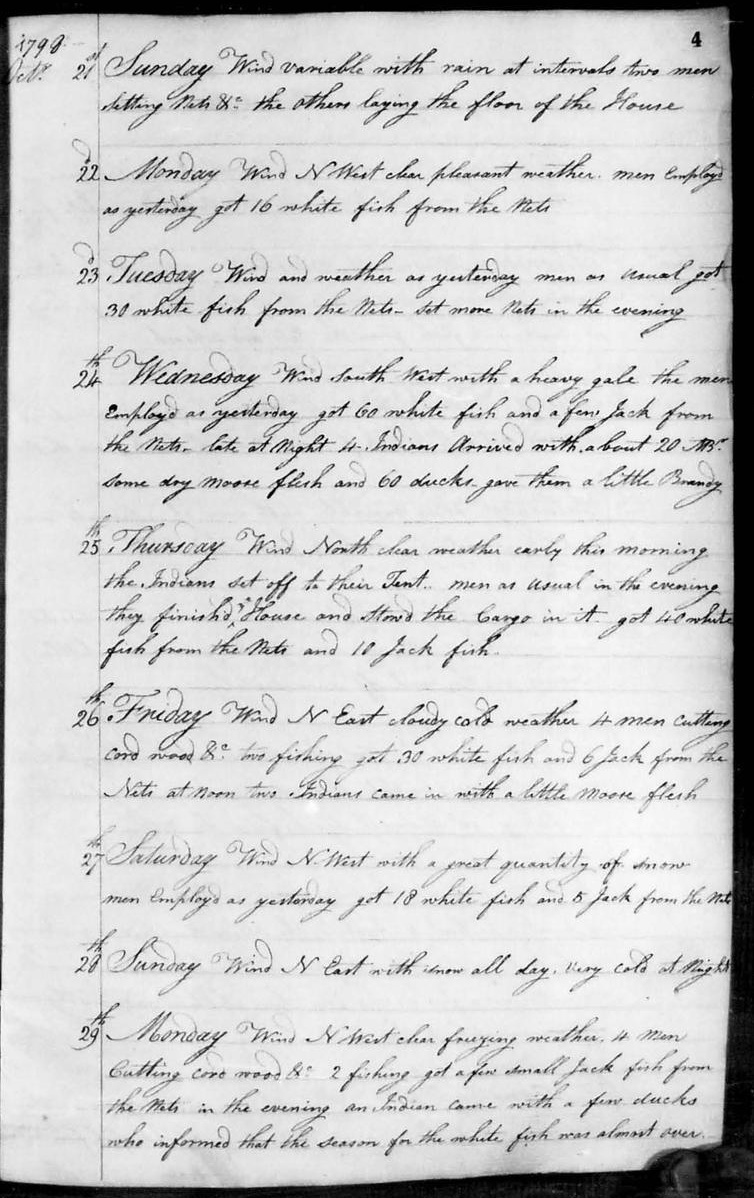 4
1798
Octr. 21st Sunday Wind variable with rain at intervals two men
setting Nets &c the others laying the floor of the House
22d Monday Wind N West clear pleasant weather. men Employd
as yesterday got 16 white fish from the Nets
23d Tuesday Wind and weather as yesterday men as usual got
30 white fish from the Nets - set more Nets in the evening
24th Wednesday Wind South West with a heavy gale the men
Employd as yesterday got 60 white fish and a few Jack from
the Nets - late at Night 4 Indians Arrived with about 20 MBr.
some dry moose flesh and 60 ducks gave them a little Brandy
25th Thursday Wind North clear weather early this morning
the Indians set off to their Tent.. men as usual in the evening
they finishd ye House and stowd the Cargo in it - got 40 white
fish from the Nets and 10 Jack fish.
26th Friday Wind N East cloudy cold weather 4 men cutting
cord wood &c two fishing got 30 white fish and 6 Jack from the
Nets at noon two Indians came in with a little moose flesh
27th Saturday Wind N West with a great quantity of snow
men Employd as yesterday got 18 white fish and 5 Jack from the Nets
28th Sunday Wind N East with snow all day. very cold at Night
29th Monday Wind N West clear freezing weather. 4 Men
Cutting cord wood &c 2 fishing got a few small Jack fish from
the Nets in the evening an Indian came with a few ducks
who informed that the season for the white fish was almost over.